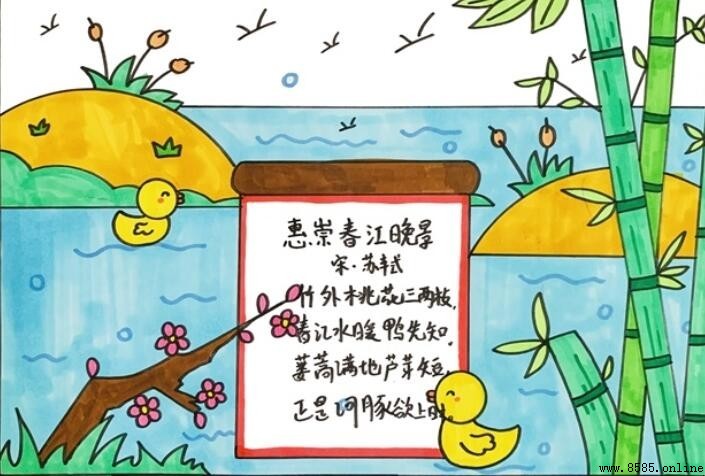 惠崇春江晚景
宋·苏轼
竹外桃花三两枝,
春江水暖鸭先知.
蒌蒿满地芦芽短,
正是河豚欲上时.
www.8585.online